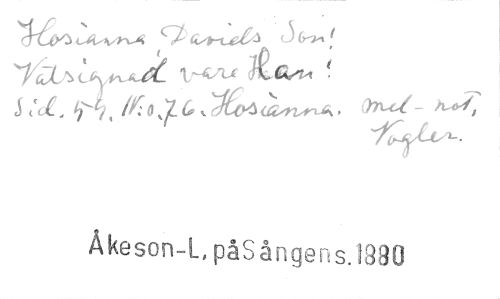 Hosianna, Davids Son!
Välsignad vare Han!
Sid. 59. N:o. 76. Hosianna. mel-not,
Vogler.
Åkeson-L, påSångens.1880